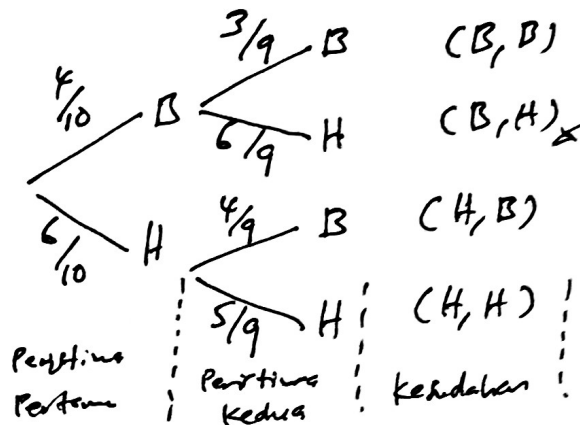 3/9 B (B, B)
4/10 B
6/9 H (B, H)
6/10 H
4/9 B (H, B)
5/9 H (H, H)
Peristiwa Pertama
Peristiwa Kedua
Kesudahan